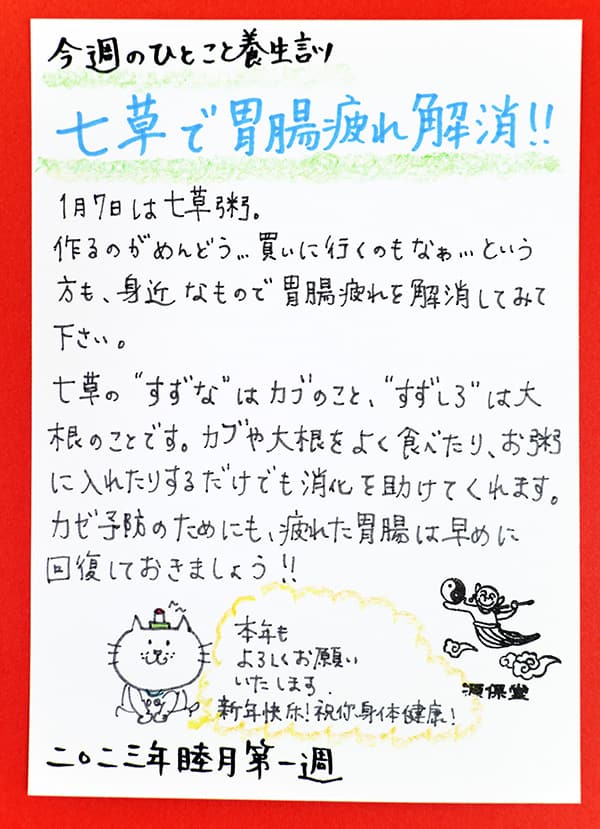 今週のひとこと養生訓
七草で胃腸疲れ解消!!
1月7日は七草粥。
作るのがめんどう…買いに行くのもなぁ…という
方も、身近なもので胃腸疲れを解消してみて
下さい。
七草の“すずな”はカブのこと、“すずしろ”は大
根のことです。カブや大根をよく食べたり、お粥
に入れたりするだけでも消化を助けてくれます。
カゼ予防のためにも、疲れた胃腸は早めに
回復しておきましょう!!
本年も
よろしくお願い
いたします.
新年快乐!祝你身体健康!
源保堂
二〇二三年睦月第一週